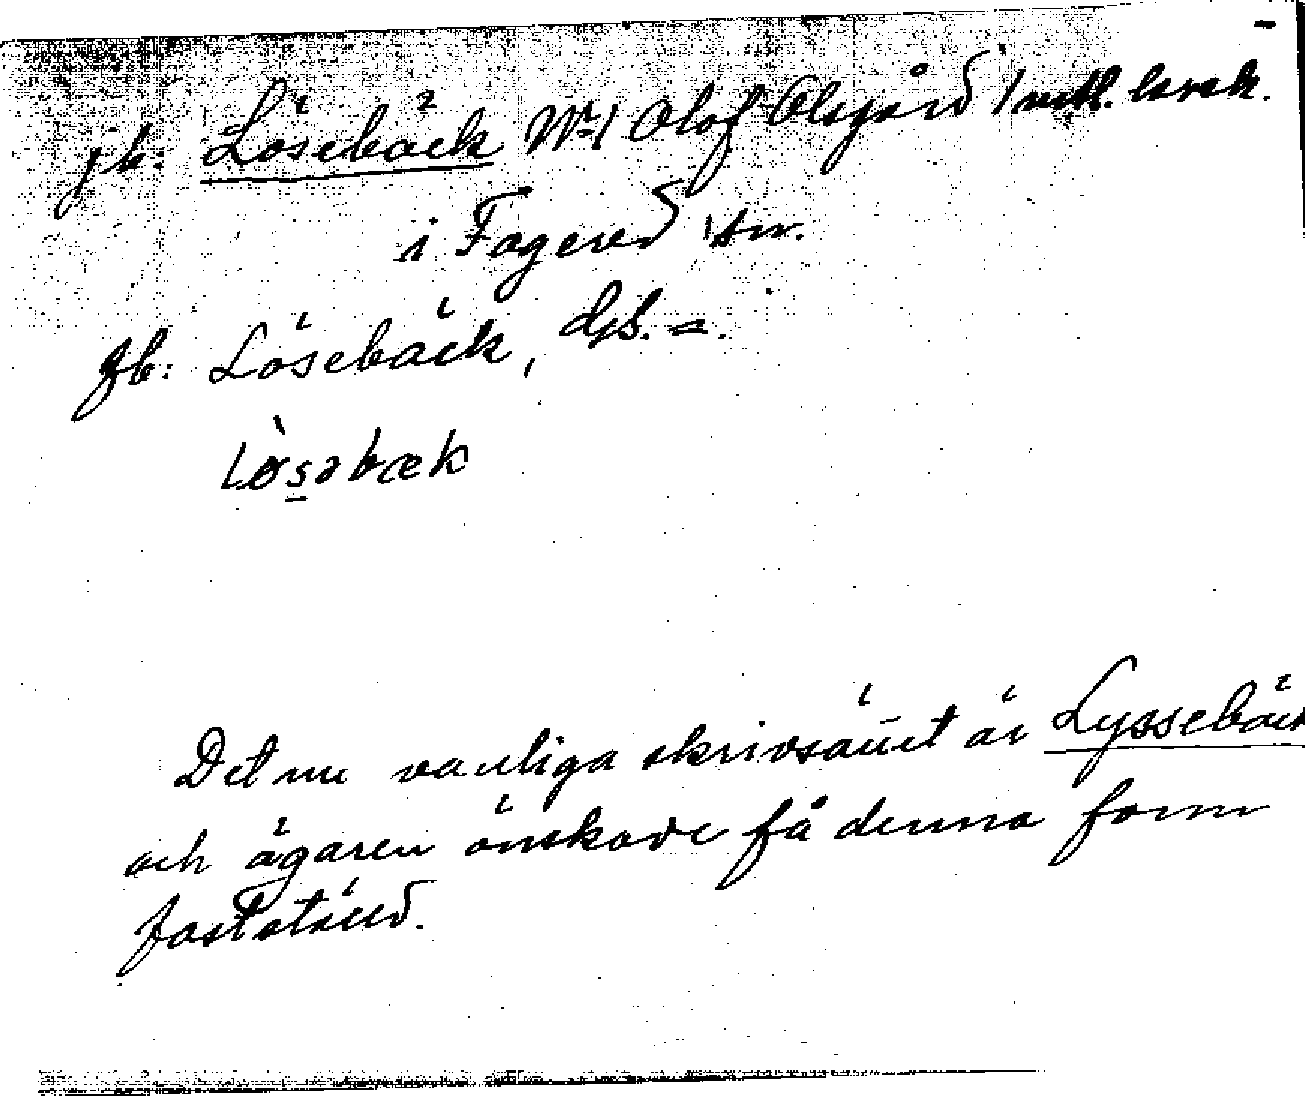 jb: Lösebäck N:1 Olof Olsgård
i Fagered
Jb: Lösebäck, ds. =.
Løs̠əbæk
Det nu vanliga skrivsättet är Lyssebäck
och ägaren önskade få denna form
fastställd.